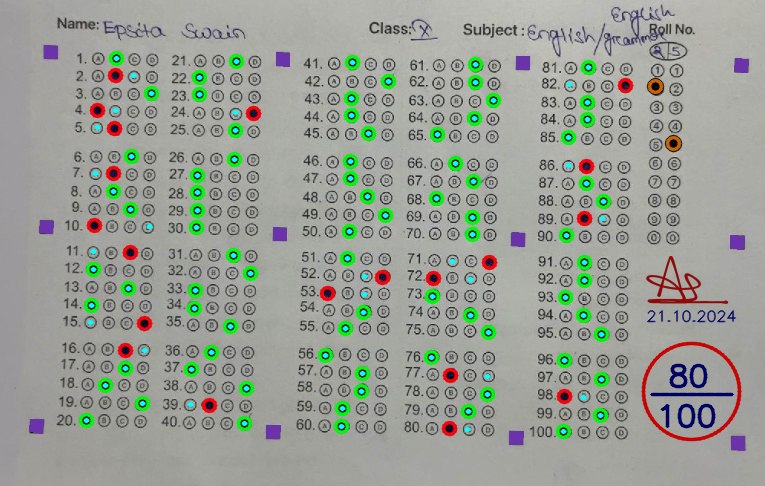 Name: Epsita Swain
Class: X
Subject: English/grammar
English
Roll No.
2 5
1. A C D
2. A D
3. A B C
4. C D
5. C D
6. A B D
7. C D
8. A C D
9. A B D
10. B C
11. B D
12. B C D
13. A B D
14. B C D
15. B C
16. A B
17. A B D
18. A C D
19. A B C
20. B C D
21. A B D
22. B C D
23. B C D
24. A B
25. A B D
26. A B D
27. B C D
28. B C D
29. B C D
30. B C D
31. A B D
32. A B C
33. B C D
34. B C D
35. A B D
36. A C D
37. B C D
38. A B C
39. C D
40. A B C
41. A C D
42. A B C
43. A C D
44. A C D
45. A B D
46. A C D
47. A C D
48. A B D
49. A B C
50. A C D
51. A C D
52. A B
53. B D
54. A B D
55. A C D
56. B C D
57. A B D
58. A B D
59. A C D
60. A C D
61. A B D
62. A B D
63. A B C
64. A B D
65. B C D
66. A C D
67. A B D
68. B C D
69. A B D
70. A B D
71. A C
72. B D
73. B C D
74. A B D
75. A B C
76. B C D
77. A C
78. A B C
79. A B D
80. A D
81. A C D
82. B C
83. A C D
84. A C D
85. B C D
86. C D
87. A C D
88. A B D
89. A D
90. B C D
91. A C D
92. A C D
93. B C D
94. A C D
95. A B D
96. B C D
97. A B D
98. C D
99. A B D
100. B C D
1 1
2
3 3
4 4
5
6 6
7 7
8 8
9 9
0 0
21.10.2024
80
100